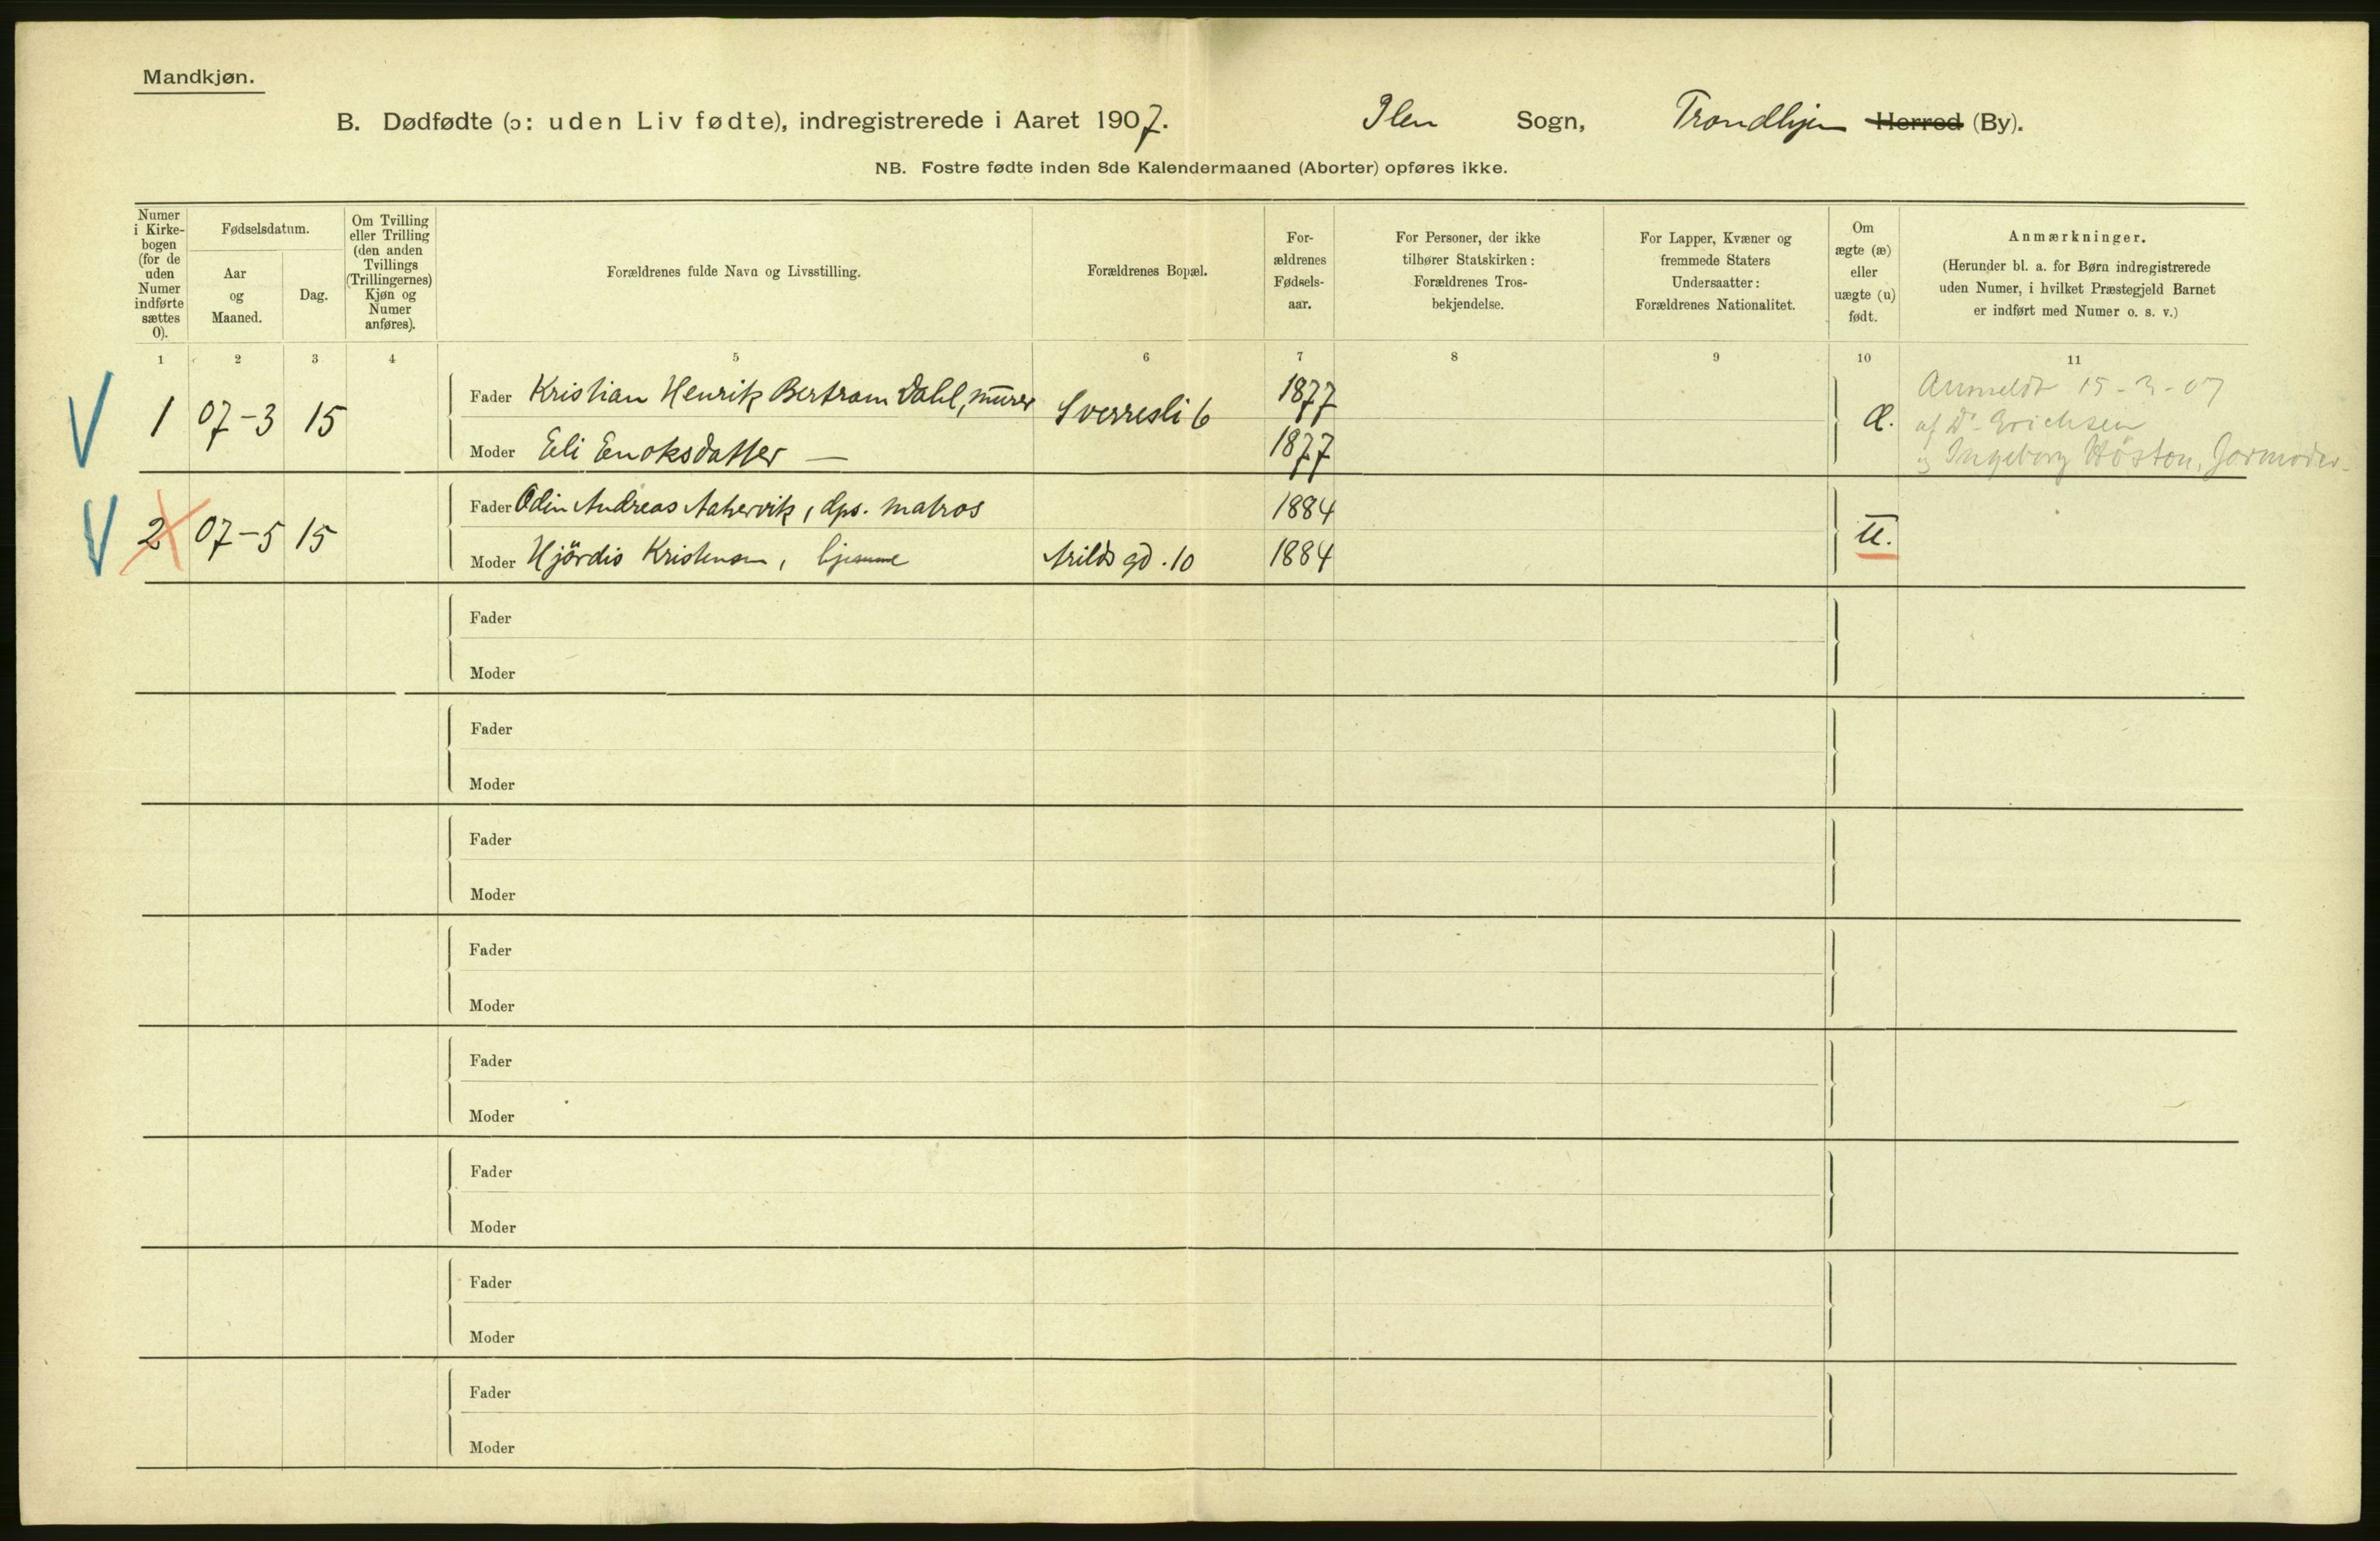 Mandkjøn.
B. Dødfødte (ɔ: uden Liv fødte), indregistrerede i Aaret 1907. Ilen Sogn, Trondhjem Herred (By).
NB. Fostre fødte inden 8de Kalendermaaned (Aborter) opføres ikke.
Numer
i Kirke-
bogen
(for de
uden
Numer
indførte
sættes
0).
Fødselsdatum.
Aar
og
Maaned.
Dag.
Om Tvilling
eller Trilling
(den anden
Tvillings
(Trillingernes)
Kjøn og
Numer
anføres).
Forældrenes fulde Navn og Livsstilling.
Forældrenes Bopæl.
For-
ældrenes
Fødsels-
aar.
For Personer, der ikke
tilhører Statskirken:
Forældrenes Tros-
bekjendelse.
For Lapper, Kvæner og
fremmede Staters
Undersaatter:
Forældrenes Nationalitet.
Om
ægte (æ)
eller
uægte (u)
født.
Anmærkninger.
(Herunder bl. a. for Børn indregistrerede
uden Numer, i hvilket Præstegjeld Barnet
er indført med Numer o. s. v.)
1 2 3 4 5 6 7 8 9 10 11
1 07-3 15
Fader Kristian Henrik Bertram Dahl, murer
Sverresli 6
1877
Moder Eli Enoksdatter —
1877
Æ.
Anmeldt 15-3-07
af Dr. Erichsen
og Ingeborg Höston, Jormoder.
2 07-5 15
Fader Odin Andreas, dps. matros
1884
Moder Hjördis Kristensen, hjemme
Arilds gd. 10
1884
U.
Fader
Moder
Fader
Moder
Fader
Moder
Fader
Moder
Fader
Moder
Fader
Moder
Fader
Moder
Fader
Moder